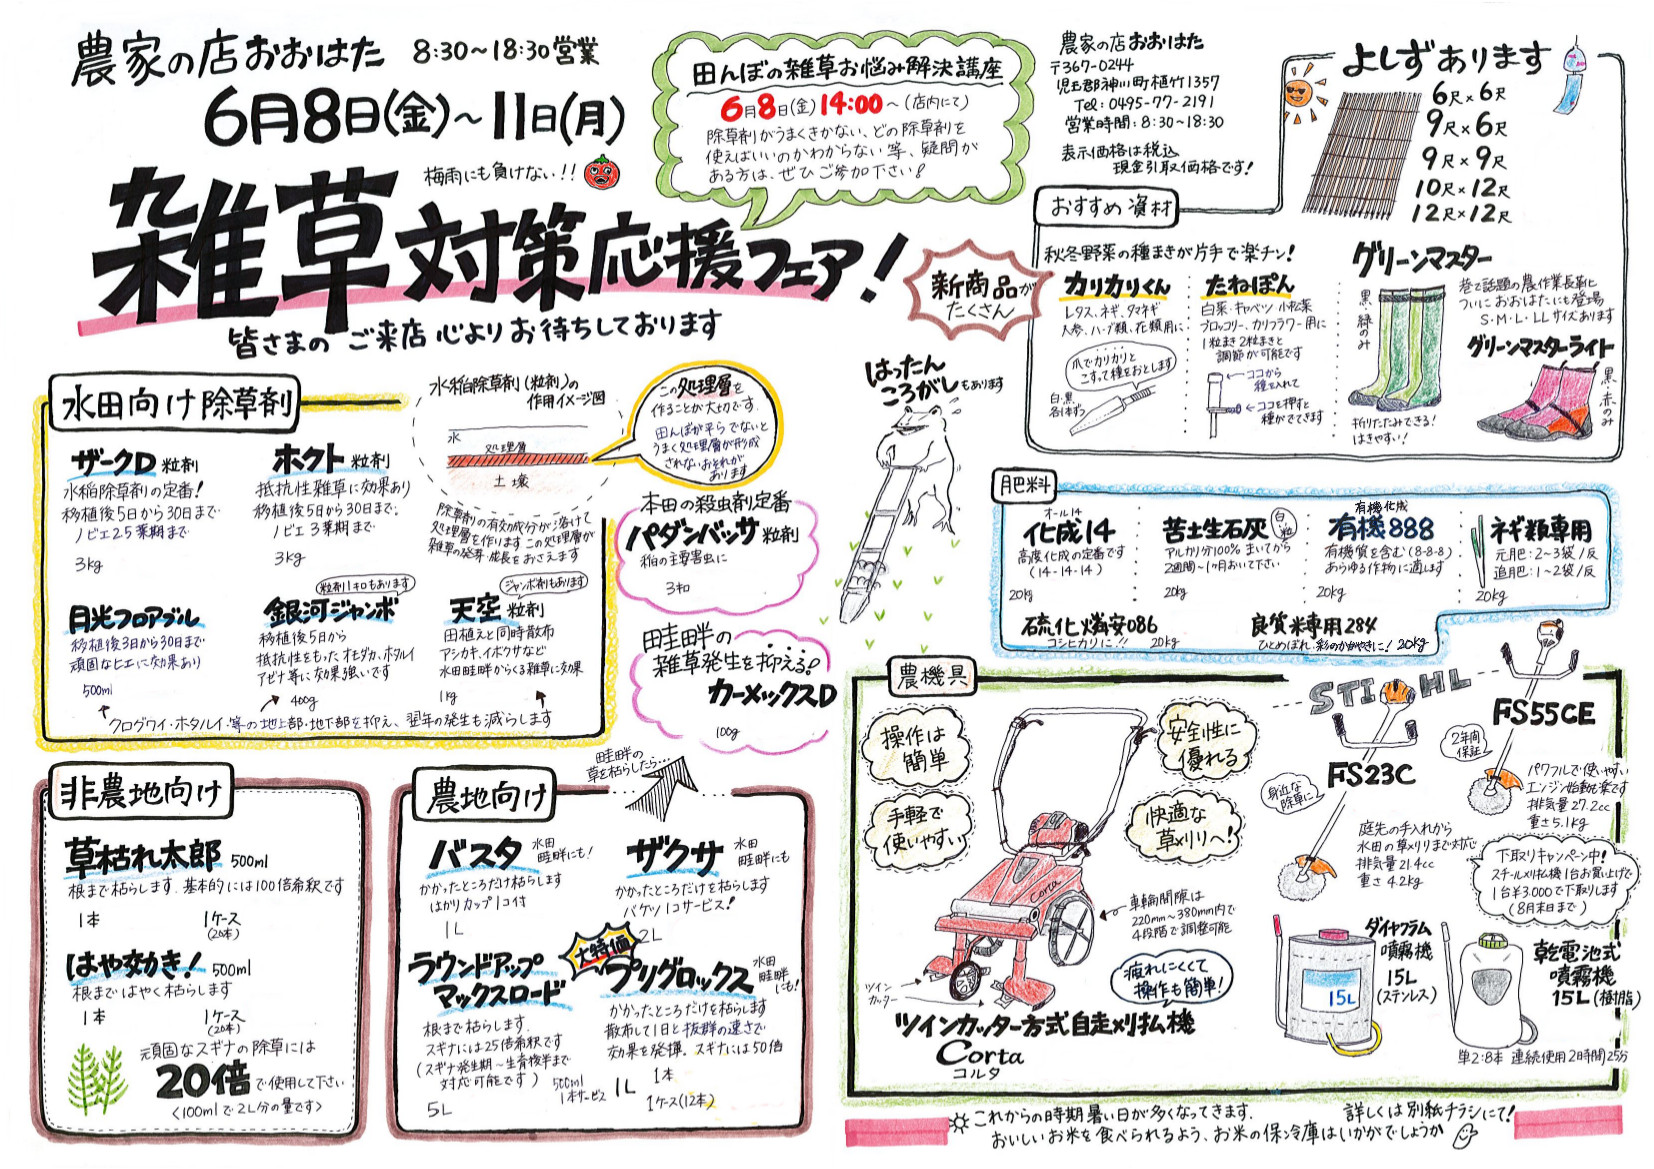 農家の店おおはた 8:30〜18:30営業
6月8日(金)〜11日(月)
梅雨にも負けない!!
雑草対策応援フェア!
皆さまのご来店心よりお待ちしております
田んぼの雑草お悩み解決講座
6月8日(金)14:00〜(店内にて)
除草剤がうまくきかない、どの除草剤を
使えばいいのかわからない等、疑問が
ある方は、ぜひご参加下さい!
農家の店おおはた
〒367-0244
児玉郡神川町植竹1357
TEL:0495-77-2191
営業時間:8:30~18:30
表示価格は税込
現金引取価格です!
よしずあります
6尺×6尺
9尺×6尺
9尺×9尺
10尺×12尺
12尺×12尺
おすすめ資材
新商品が
たくさん
秋冬野菜の種まきが片手で楽チン!
カリカリくん
レタス、ネギ、タマネギ
人参、ハーブ類、花類用に
爪でカリカリと
こすって種をおとします
白・黒
各1本ずつ
たねぽん
白菜・キャベツ 小松菜
ブロッコリー、カリフラワー用に
1粒まき2粒まきと
調節が可能です
ココから
種を入れて
ココを押すと
種がでてきます
グリーンマスター
巷で話題の農作業長靴
ついにおおはたにも登場
S・M・L・LLサイズあります
黒、緑のみ
折りたたみできる!
はきやすい!
グリーンマスターライト
黒、赤のみ
はったん
ころがしもあります
水田向け除草剤
ザークD 粒剤
水稲除草剤の定番!
移植後5日から30日まで
ノビエ2.5葉期まで
3kg
ホクト 粒剤
抵抗性雑草に効果あり
移植後5日から30日まで、
ノビエ3葉期まで
3kg
水稲除草剤(粒剤)の
作用イメージ図
水
処理層
土壌
除草剤の有効成分が溶けて
処理層を作ります この処理層が
雑草の発芽・成長をおさえます
この処理層を
作ることが大切です。
田んぼが平らでないと
うまく処理層が形成
されないおそれが
あります
月光フロアブル
移植後3日から30日まで
頑固なヒエに効果あり
500ml
粒剤1キロもあります
銀河ジャンボ
移植後5日から
抵抗性をもったオモダカ、ホタルイ
アゼナ等に効果強いです
400g
ジャンボ剤もあります
天空 粒剤
田植えと同時散布
アシカキ、イボクサなど
水田畦畔からくる雑草に効果
1kg
クログワイ・ホタルイ等の地上部・地下部を抑え、翌年の発生も減らします
本田の殺虫剤定番
パダンバッサ 粒剤
稲の主要害虫に
3キロ
田畦畔の
雑草発生を抑える!
カーメックスD
100g
肥料
オール14
化成14
高度化成の定番です
(14-14-14)
20kg
苦土生石灰 白粒
アルカリ分100% まいてから
2週間〜1ヶ月おいて下さい
20kg
有機化成
有機888
有機質を含む(8-8-8)
あらゆる作物に適します
20kg
ネギ類専用
元肥:2〜3袋/反
追肥:1〜2袋/反
20kg
硫化燐安086
コシヒカリに!! 20kg
良質米専用284
ひとめぼれ、彩のかがやきに! 20kg
非農地向け
草枯れ太郎 500ml
根まで枯らします。基本的には100倍希釈です
1本 1ケース
(20本)
はや効き! 500ml
根まではやく枯らします
1本 1ケース
(20本)
頑固なスギナの除草には
20倍で使用して下さい
<100mlで2L分の量です>
畦畔の
草を枯らしたら…
農地向け
バスタ 水田畦畔にも!
かかったところだけ枯らします
はかりカップ1コ付
1L
ザクサ 水田畦畔にも
かかったところだけを枯らします
バケツ1コサービス!
2L
ラウンドアップ
マックスロード
根まで枯らします。
スギナには25倍希釈です
(スギナ発生期〜生育後半まで
対応可能です)
5L
500ml
1本サービス
大特価
プリグロックス 水田畦畔にも!
かかったところだけを枯らします
散布して1日と抜群の速さで
効果を発揮。スギナには50倍
1L
1本
1ケース(12本)
農機具
操作は
簡単
手軽で
使いやすい
安全性に
優れる
快適な
草刈りへ!
Corta
車輪間隙は
220mm〜380mm内で
4段階で調整可能
疲れにくくて
操作も簡単!
ツイン
カッター
ツインカッター方式自走刈払機
Corta
コルタ
STIHL
FS23C
身近な
除草に♪
庭先の手入れから
水田の草刈りまで対応
排気量21.4cc
重さ4.2kg
FS55CE
2年間
保証
パワフルで使いやすい
エンジン始動も楽です
排気量27.2cc
重さ5.1kg
下取りキャンペーン中!
スチール刈払機1台お買い上げで
1台¥3,000で下取りします
(8月末日まで)
ダイヤフラム
噴霧機
15L
(ステンレス)
15L
乾電池式
噴霧機
15L(樹脂)
単2:8本 連続使用2時間25分
これからの時期暑い日が多くなってきます。
おいしいお米を食べられるよう、お米の保冷庫はいかがでしょうか
詳しくは別紙チラシにて!